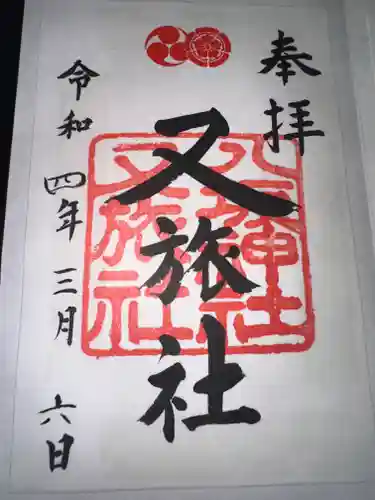 奉拝
又旅社
八坂神社
又旅社
令和四年三月六日